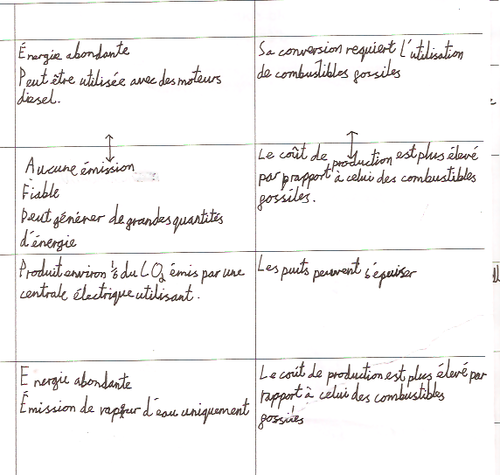 Énergie abondante
Peut être utilisée avec des moteurs
diesel.
Sa conversion requiert l'utilisation
de combustibles gossiles
Aucune émission
Fiable
Peut générer de grandes quantités
d'énergie
Le coût de production est plus élevé
par prapport à celui des combustibles
gossiles.
Produit environ du CO₂ émis par une
centrale électrique utilisant.
Les puits peuvent s'épuiser
Energie abondante
Émission de vapeur d'eau uniquement
Le coût de production est plus élevé par
rapport à celui des combustibles
gossiles